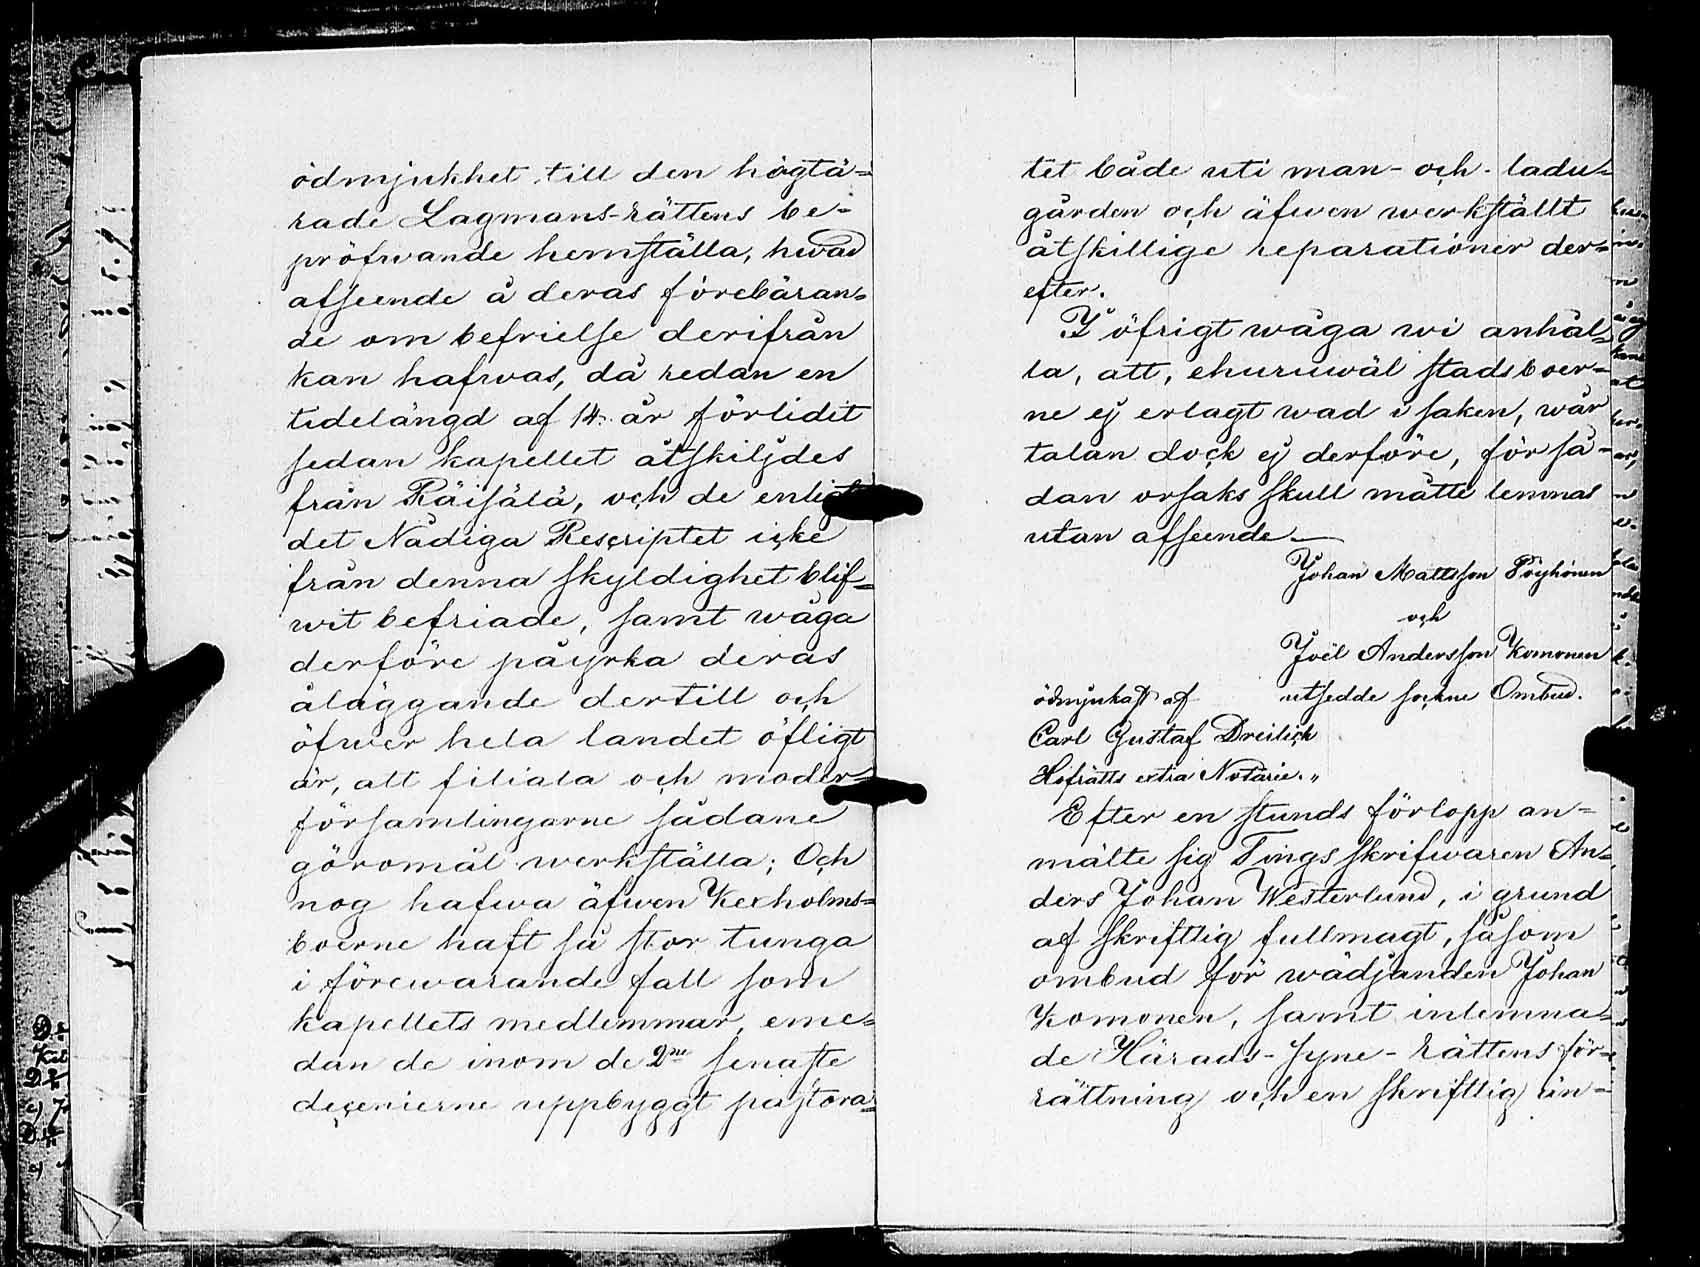 ödmjukhet till den högtä-
rade Lagmans-rättens be-
pröfwande hemställa, hwad
afseende å deras förebäran-
de om befrielse derifrån
kan hafwas, då redan en
tidelängd af 14. år förlidit
sedan kapellet åtskiljdes
från Räisälä, och de enligt
det Nådiga Rescriptet icke
från denna skyldighet blif-
wit befriade, samt wåga
derföre påyrka deras
åläggande dertill och
öfwer hela landet öfligt
är, att filiala och moder-
församlingarne sådane
göromål werkställa; Och
nog hafwa äfwen Kexholms-
boerne haft så stor tunga
i förewarande fall som
kapellets medlemmar, eme-
dan de inom de 2ne senaste
decenierne uppbyggt pastora-
tet både uti man- och ladu-
gården och äfwen werkställt
åtskillige reparationer der-
efter.
I öfrigt wåga wi anhål-
la, att, ehuruwäl stadsboer-
ne ej erlagt wad i saken, wår
talan dock ej derföre, för så-
dan orsaks skull måtte lemnas
utan afseende.—
Johan Mattsson Pöyhönen
och
Joël Andersson Komonen
utsedde sockne Ombud.
ödmjukast af
Carl Gustaf Dreilich
Hofrätts extra Notarie."
Efter en stunds förlopp an-
mälte sig Tings skrifwaren An-
ders Johan Westerlund, i grund
af skriftlig fullmagt, såsom
ombud för wädjanden Johan
Komonen, samt inlemna-
de Härads-Syne-rättens för-
rättning och en skriftlig in-